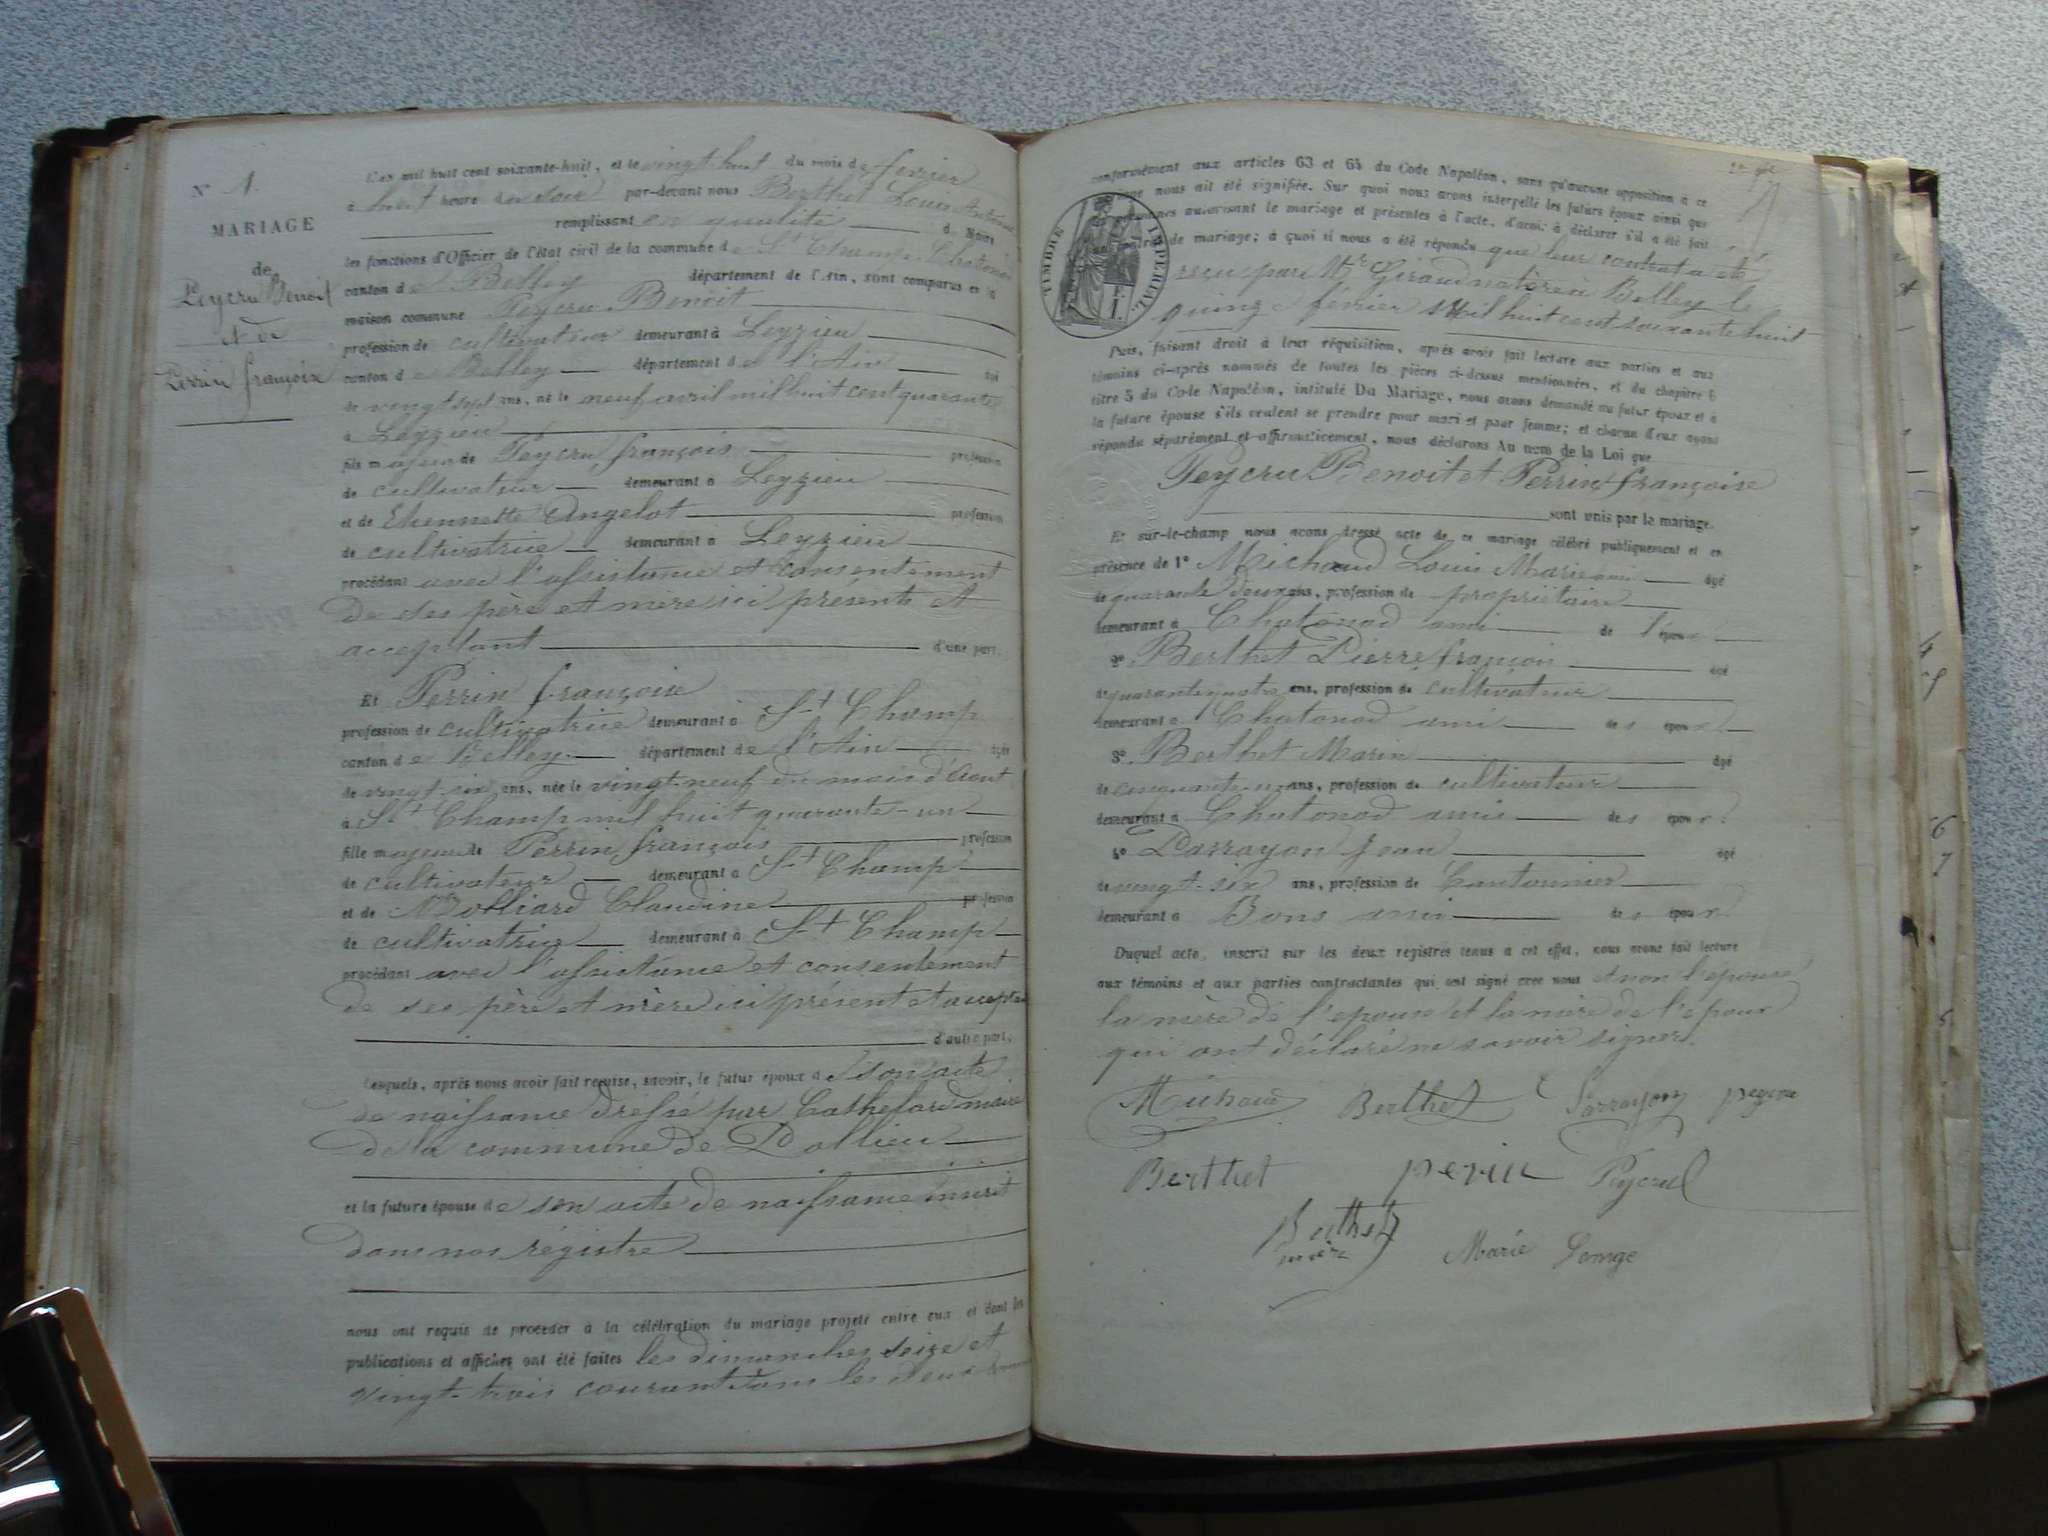 N° 1.
MARIAGE
de
Peycru Benoit
et de
Perrin françoise
L'an mil huit cent soixante-huit, et le vingt huit du mois de fevrier
à huit heure du soir par-devant nous Berthet Louis Antoine
remplissant en qualité de Maire
les fonctions d'Officier de l'état civil de la commune de St Champ-Chatonod
canton de Belley département de l'Ain, sont comparus en la
maison commune Peycru Benoit
profession de cultivateur demeurant à Leyzieu
canton de Belley département de l'Ain
de vingt sept ans, né le neuf avril mil huit cent quarante
à Leyzieu
fils majeur de Peycru françois profession
de cultivateur demeurant à Leyzieu
et de Ehennette Angelot profession
de cultivatrice demeurant à Leyzieu
procédant avec l'assistance et consentement
de ses père et mère ici présents et
acceptant d'une part.
Et Perrin françoise
profession de cultivatrice demeurant à St Champ
canton de Belley département de l'Ain âgée
de vingt-six ans, née le vingt-neuf du mois d'Aout
à St Champ mil huit quarante-un
fille majeure de Perrin françois profession
de cultivateur demeurant à St Champ
et de Molliard Claudine profession
de cultivatrice demeurant à St Champ
procédant avec l'assistance et consentement
de ses père et mère ici présent et acceptant
d'autre part.
Lesquels, après nous avoir fait remise, savoir, le futur époux de son acte
de naissance dréssé par Cathelard maire
de la commune de Pollieu
et la future épouse de son acte de naissance inscrit
dans nos régistre
nous ont requis de procéder à la célébration du mariage projeté entre eux et dont les
publications et affiches ont été faites les dimanches seize et
vingt-trois courant dans les deux
conformément aux articles 63 et 64 du Code Napoléon, sans qu'aucune opposition à ce
mariage nous ait été signifiée. Sur quoi nous avons interpellé les futurs époux ainsi que
personnes autorisant le mariage et présentes à l'acte, d'avoir à déclarer s'il a été fait
de mariage; à quoi il nous a été répondu que leur contrat a été
TIMBRE IMPERIAL
reçu par Mr Giraud notaire à Belley le
quinze février Mil huit cent soixante huit
Puis, faisant droit à leur réquisition, après avoir fait lecture aux parties et aux
témoins ci-après nommés de toutes les pièces ci-dessus mentionnées, et du chapitre 6
titre 5 du Code Napoléon, intitulé Du Mariage, nous avons demandé au futur époux et à
la future épouse s'ils veulent se prendre pour mari et pour femme; et chacun d'eux ayant
répondu séparément et affirmativement, nous déclarons Au nom de la Loi que
Peycru Benoit et Perrin françoise
sont unis par le mariage.
Et sur-le-champ nous avons dressé acte de ce mariage célébré publiquement et en
présence de 1° Michaud Louis Marie âgé
de quarante deux ans, profession de propriétaire
demeurant à Chatonod ami de l'épouse
2° Berthet Pierre françois âgé
de quarante quatre ans, profession de cultivateur
demeurant à Chatonod ami des époux
3° Berthet Marin âgé
de cinquante un ans, profession de cultivateur
demeurant à Chatonod amis des époux
4° Darrayon Jean âgé
de vingt-six ans, profession de Cantonnier
demeurant à Bons ami des époux
Duquel acte, inscrit sur les deux registres tenus à cet effet, nous avons fait lecture
aux témoins et aux parties contractantes qui ont signé avec nous et non l'epouse,
la mère de l'epouse et la mère de l'epoux
qui ont déclaré ne savoir signer.
Michaud Berthet Darrayon peycru
Berthet perin Peycru
Berthet
maire Marie Songe